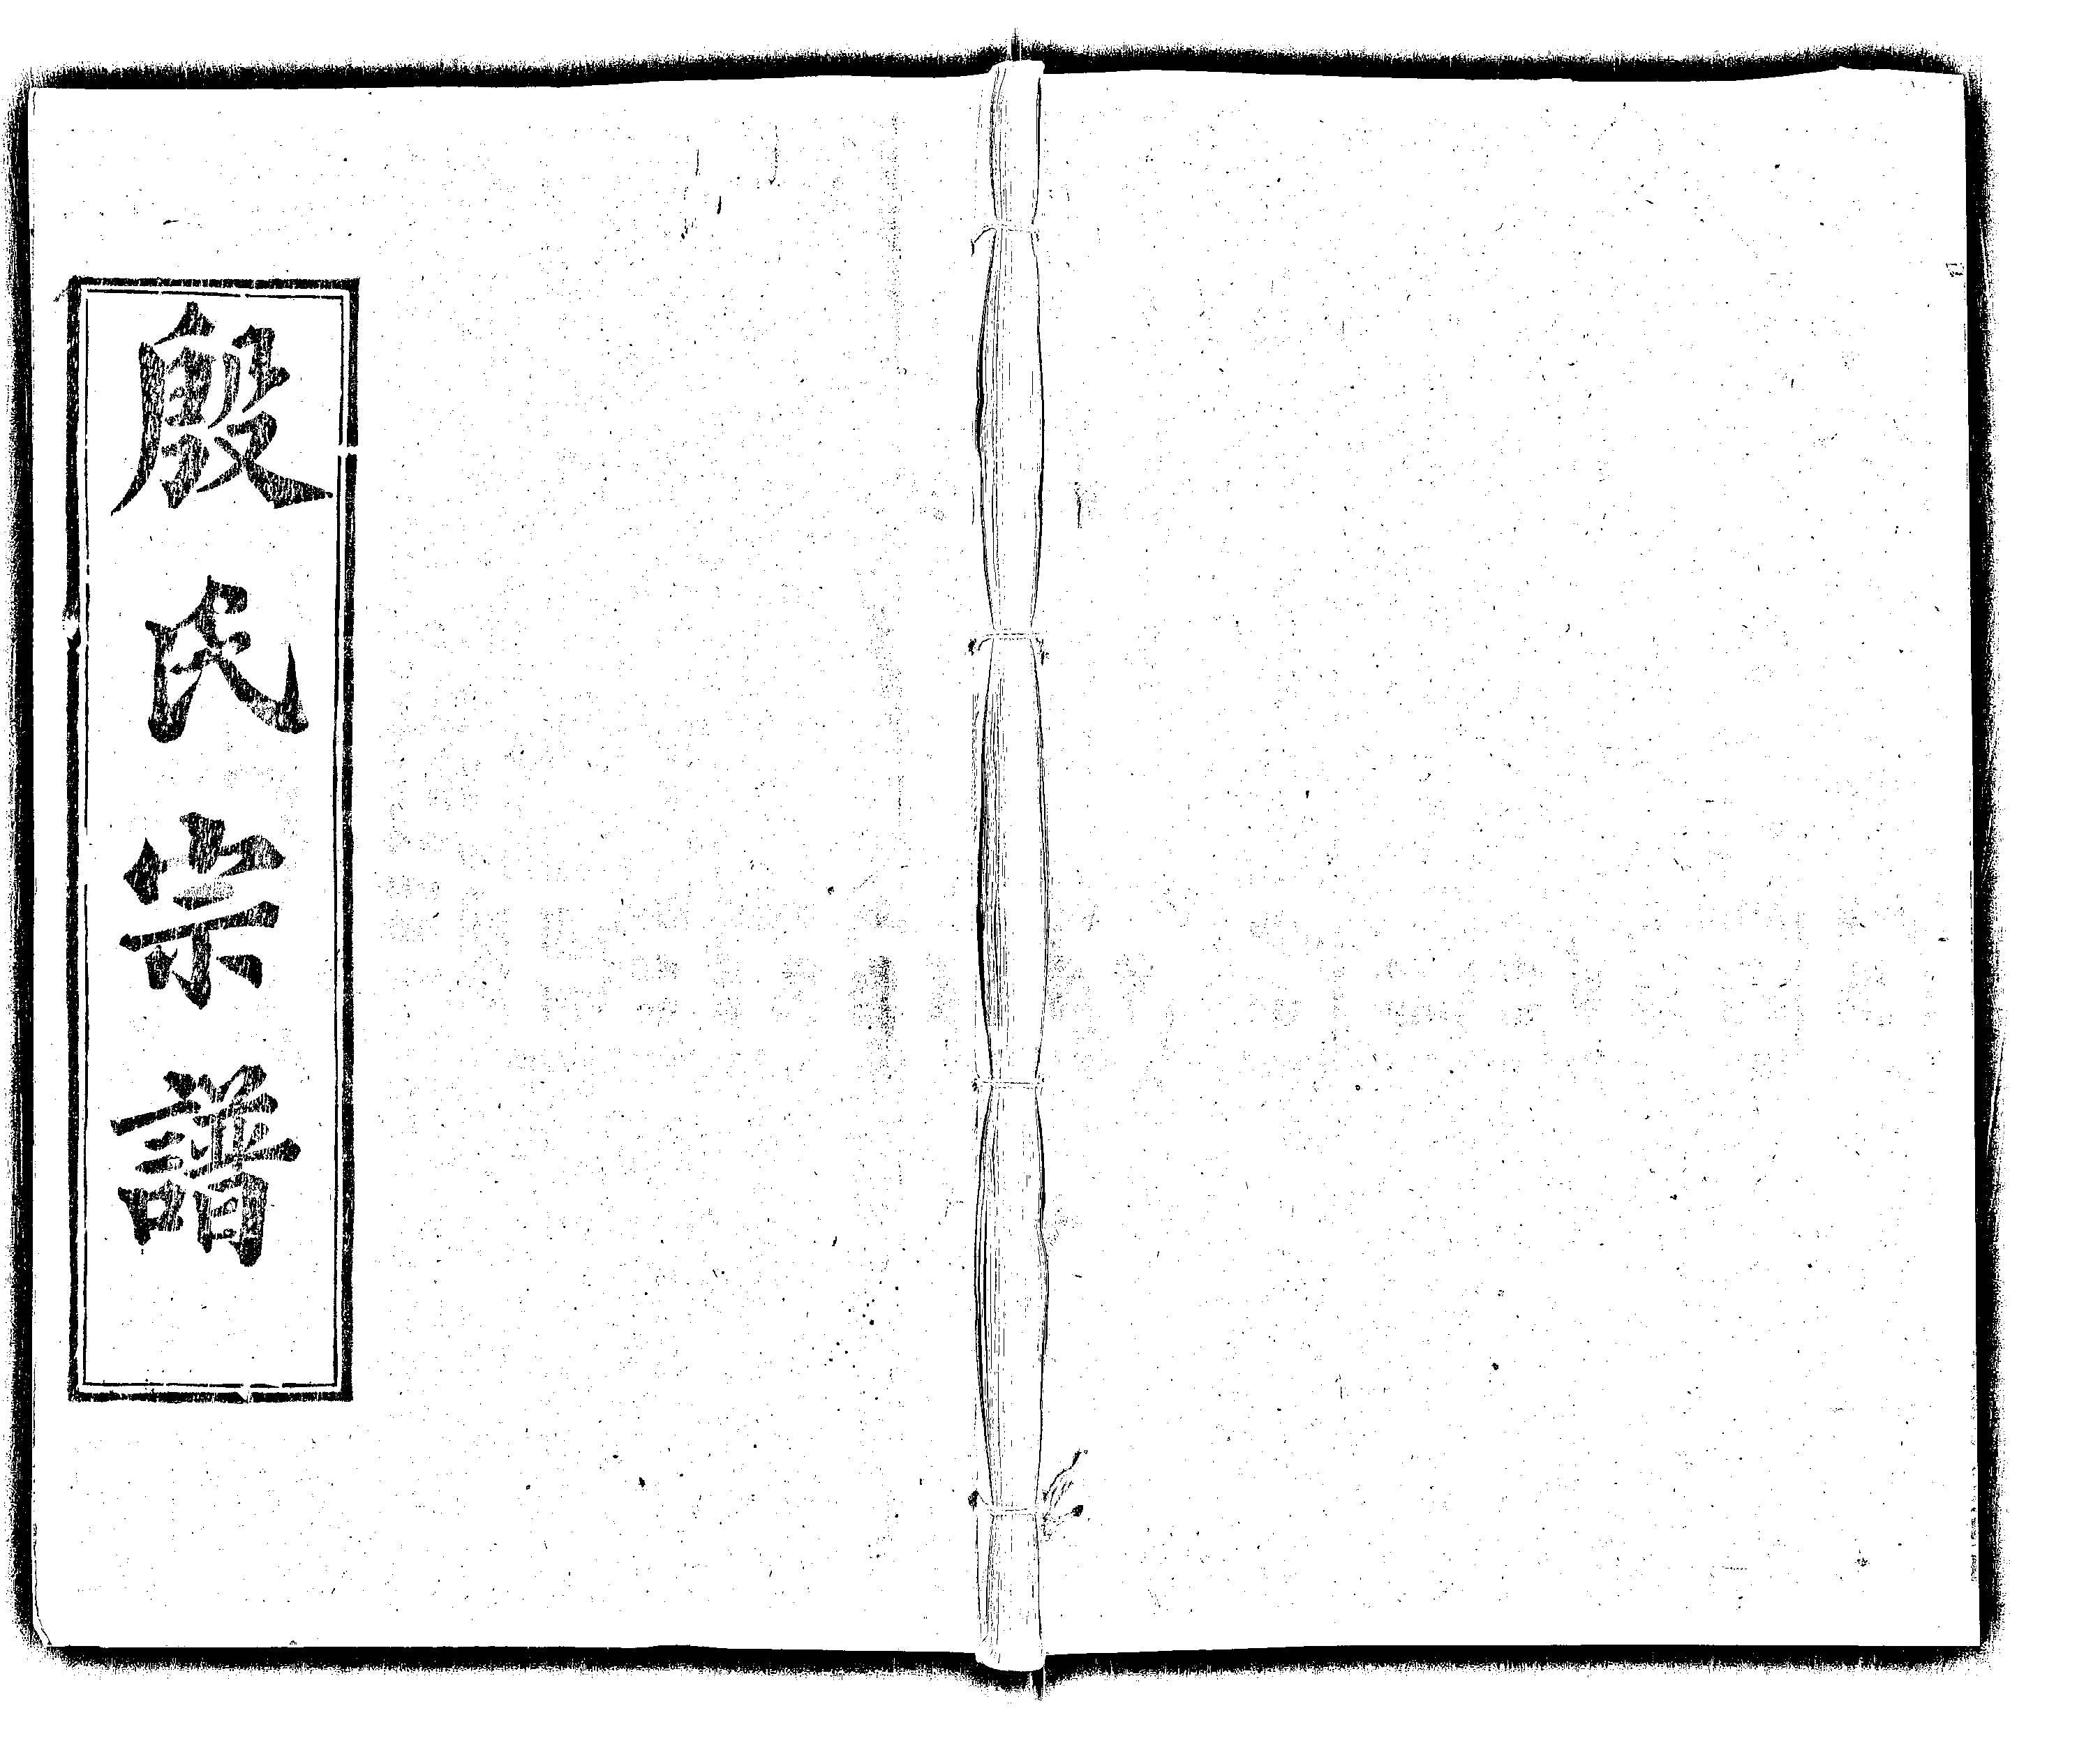 殷氏宗譜